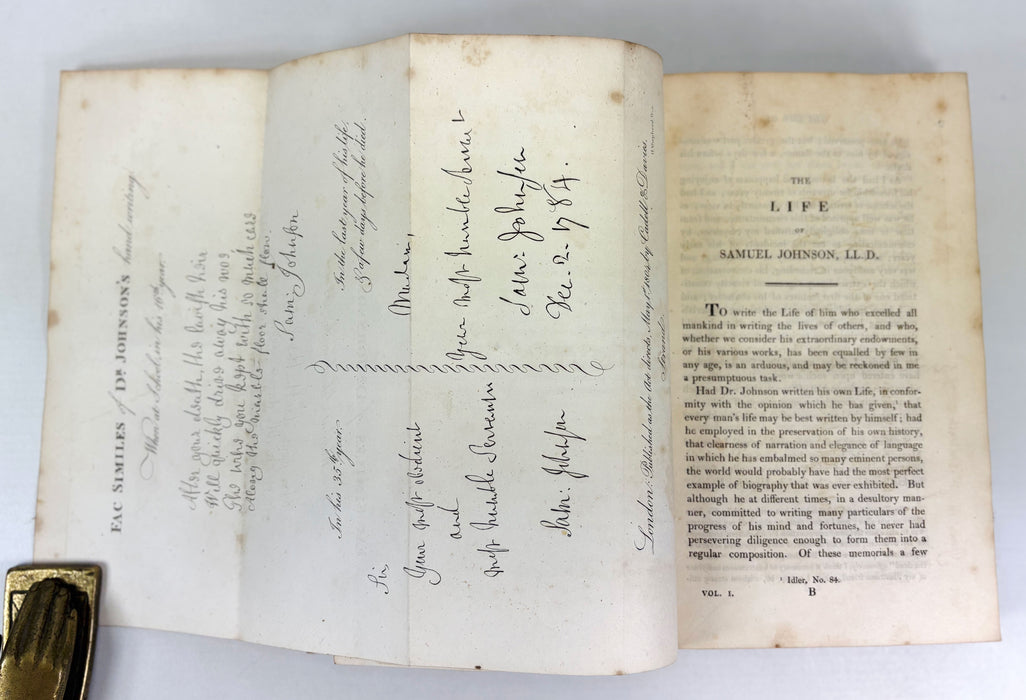 FAC SIMILES of DR. JOHNSON'S hand writing.
When at School, in his 16th year.
Alas your wealth, the lavish heir
Will quickly drive away his woe.
The wine you kept with so much care
Along the marble floor shall flow.
Sam: Johnson
In his 35th year.
Sir
Your most obedient
and
most humble Servant
Sam: Johnson
In the last year of his life,
& a few days before he died.
Madam,
Your most humble Servant
Sam: Johnson
Dec. 2. 1784.
London: Published as the Act directs, May 1st 1804, by Cadell & Davies,
Strand.
THE
LIFE
OF
SAMUEL JOHNSON, LL.D.
To write the Life of him who excelled all
mankind in writing the lives of others, and who,
whether we consider his extraordinary endowments,
or his various works, has been equalled by few in
any age, is an arduous, and may be reckoned in me
a presumptuous task.
Had Dr. Johnson written his own Life, in confor-
mity with the opinion which he has given,¹ that
every man's life may be best written by himself; had
he employed in the preservation of his own history,
that clearness of narration and elegance of language
in which he has embalmed so many eminent persons,
the world would probably have had the most perfect
example of biography that was ever exhibited. But
although he at different times, in a desultory man-
ner, committed to writing many particulars of the
progress of his mind and fortunes, he never had
persevering diligence enough to form them into a
regular composition. Of these memorials a few
¹ Idler, No. 84.
VOL. I. B